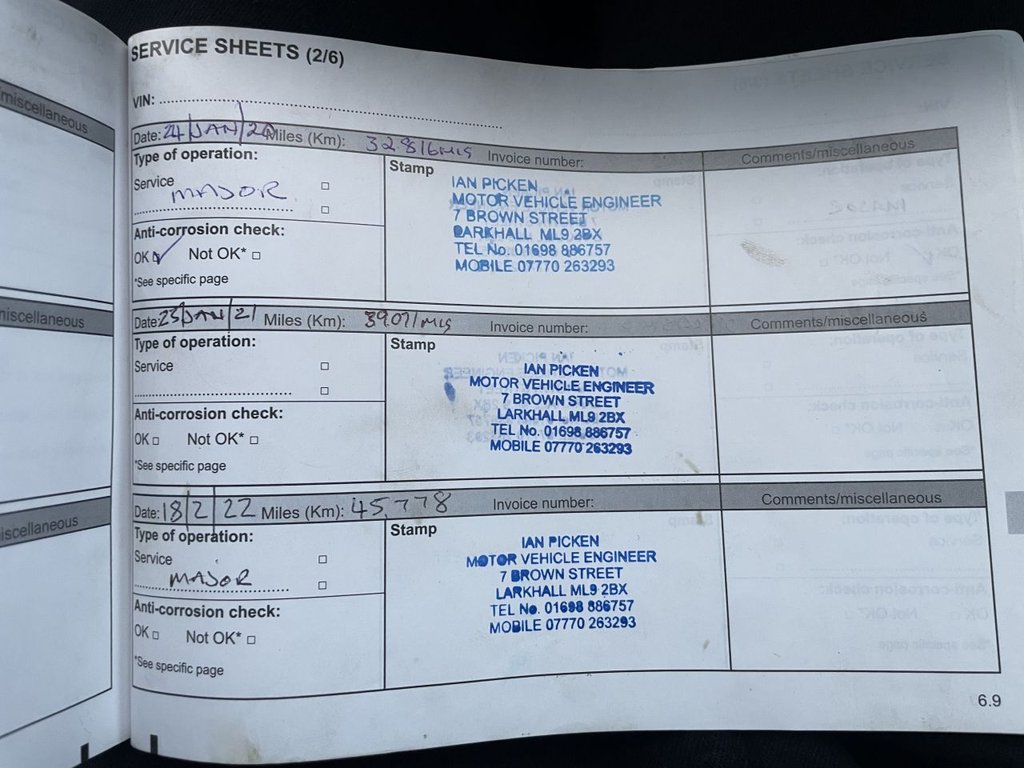 miscellaneous
miscellaneous
miscellaneous
SERVICE SHEETS (2/6)
VIN:
Date: 24/JAN/20 Miles (Km): 32816Mls Invoice number: Comments/miscellaneous
Type of operation:
Service
MAJOR
Anti-corrosion check:
OK ✓ Not OK* □
*See specific page
Stamp
IAN PICKEN
MOTOR VEHICLE ENGINEER
7 BROWN STREET
LARKHALL ML9 2BX
TEL No. 01698 886757
MOBILE 07770 263293
Date: 23/JAN/21 Miles (Km): 39071Mls Invoice number: Comments/miscellaneous
Type of operation:
Service
Anti-corrosion check:
OK □ Not OK* □
*See specific page
Stamp
IAN PICKEN
MOTOR VEHICLE ENGINEER
7 BROWN STREET
LARKHALL ML9 2BX
TEL No. 01698 886757
MOBILE 07770 263293
Date: 18/2/22 Miles (Km): 45,778 Invoice number: Comments/miscellaneous
Type of operation:
Service
MAJOR
Anti-corrosion check:
OK □ Not OK* □
*See specific page
Stamp
IAN PICKEN
MOTOR VEHICLE ENGINEER
7 BROWN STREET
LARKHALL ML9 2BX
TEL No. 01698 886757
MOBILE 07770 263293
6.9